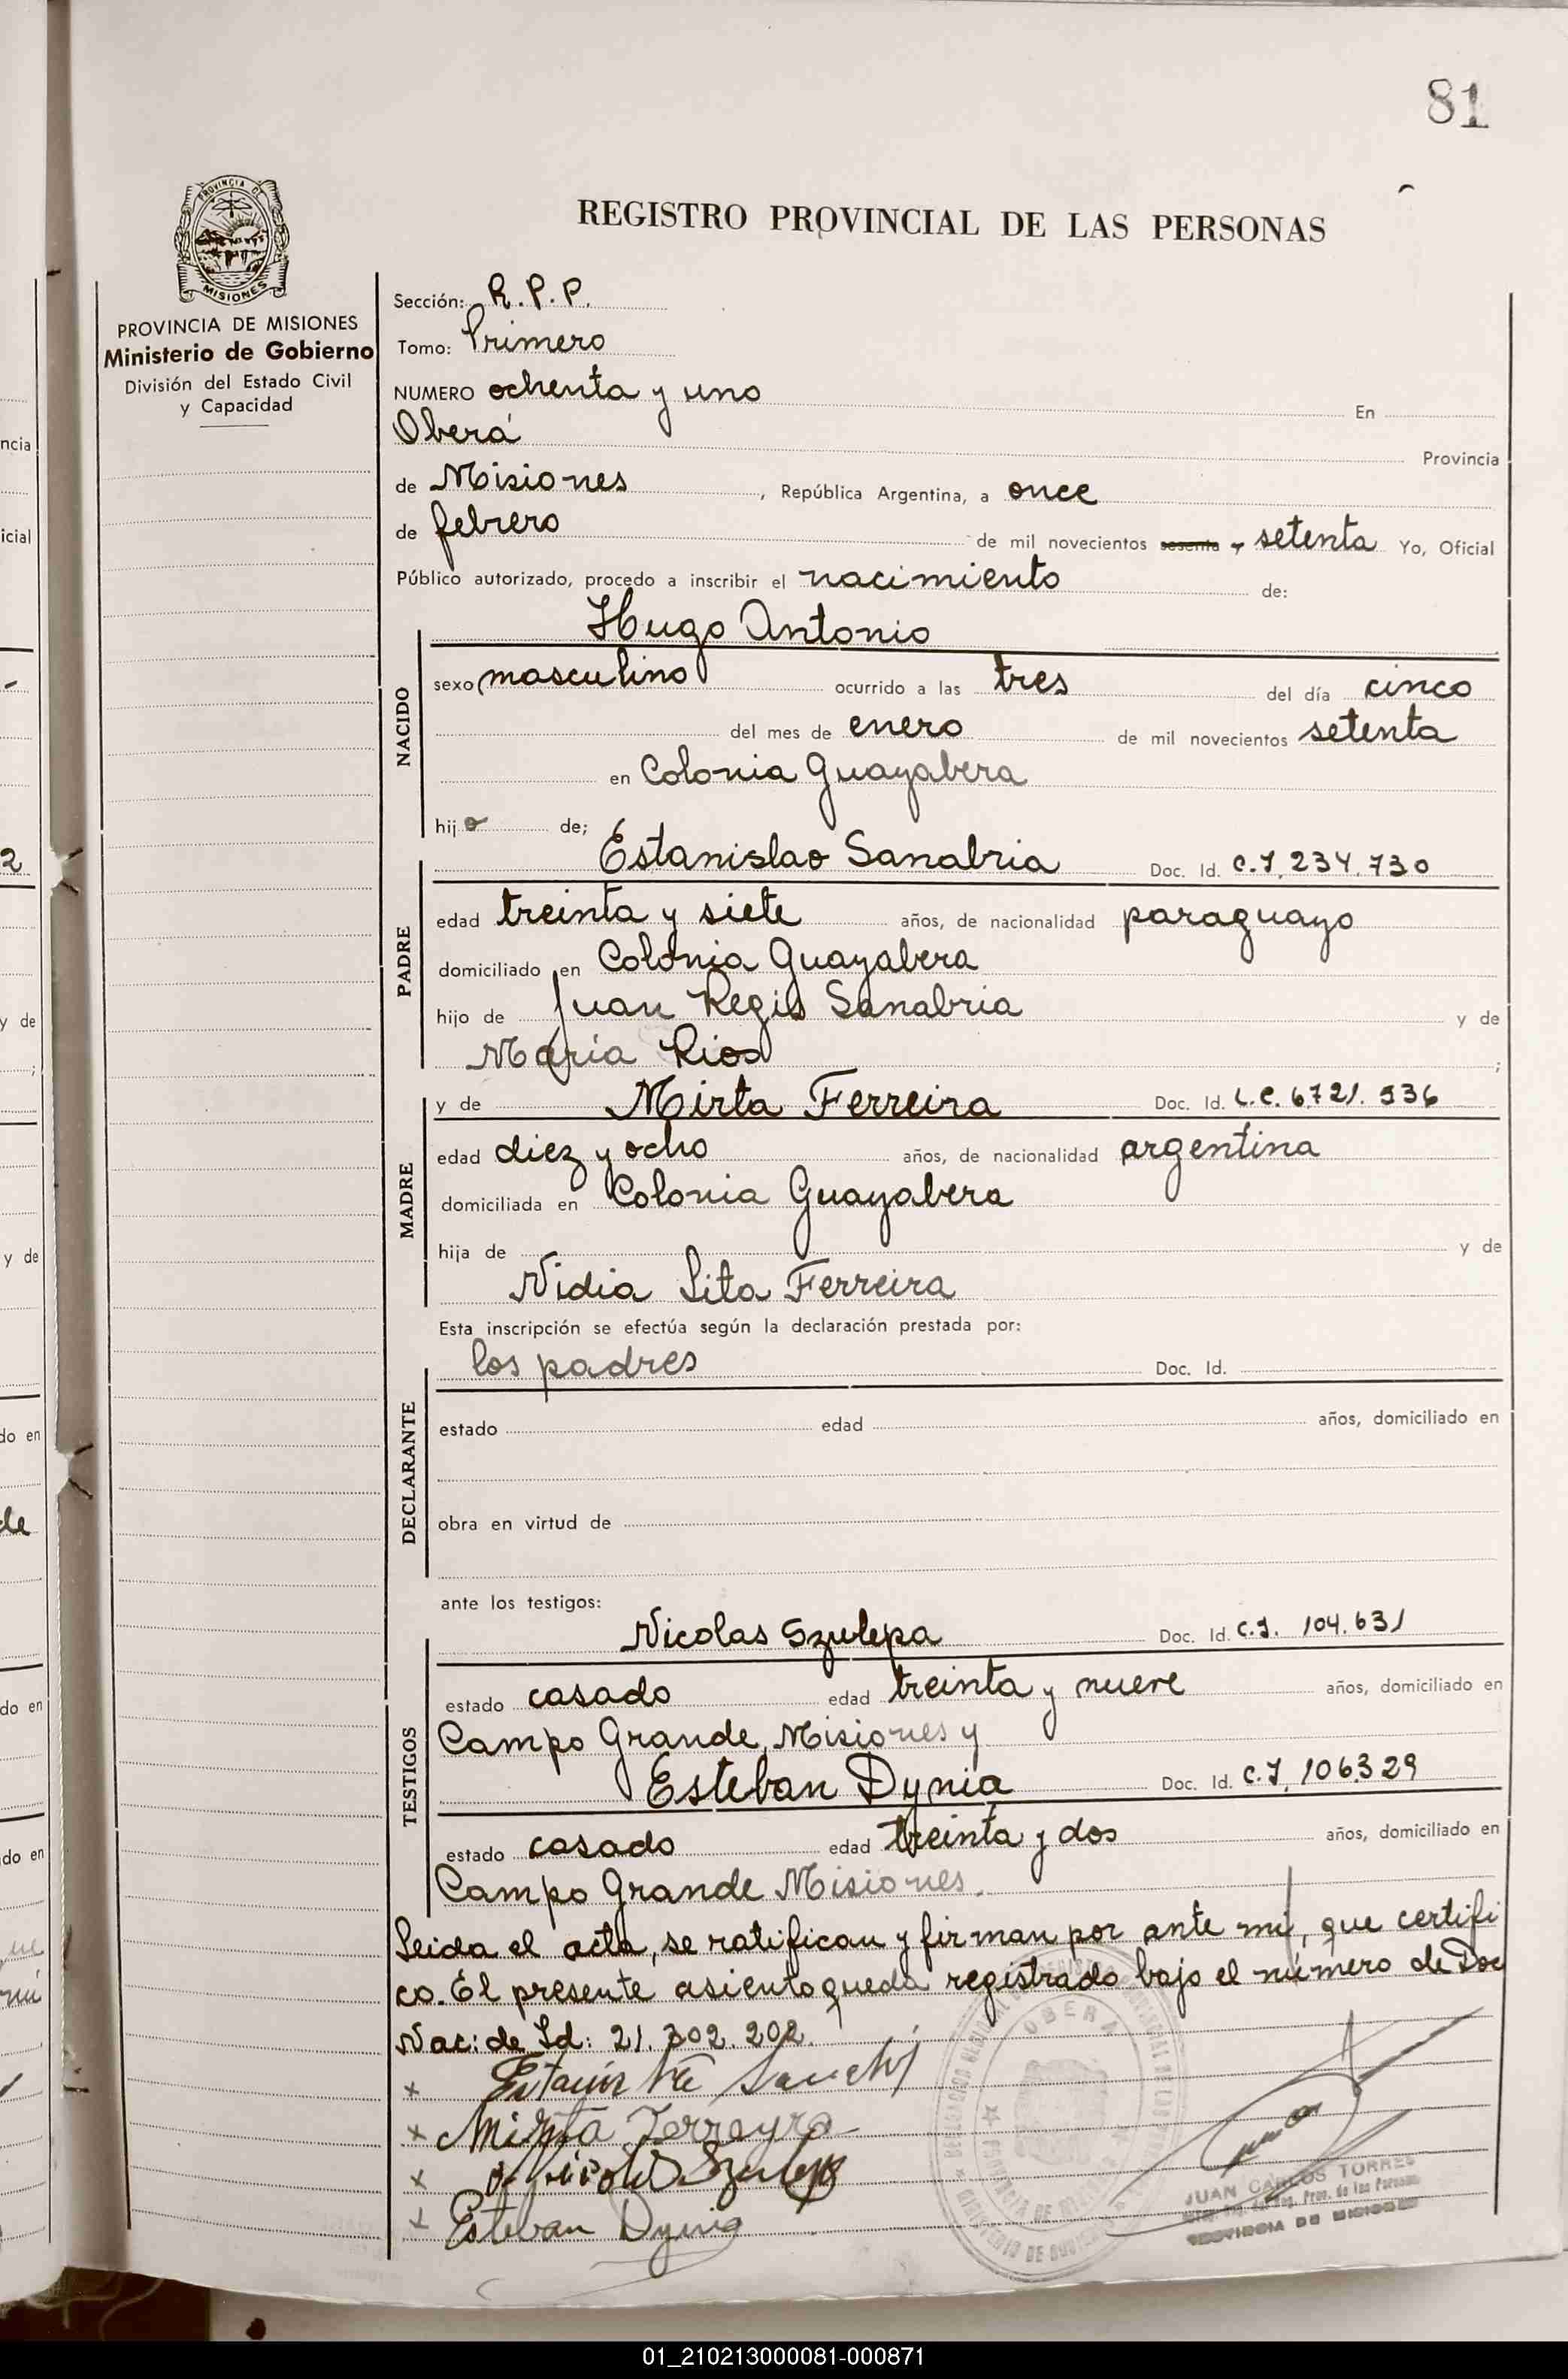 81
REGISTRO PROVINCIAL DE LAS PERSONAS
PROVINCIA DE
MISIONES
PROVINCIA DE MISIONES
Ministerio de Gobierno
División del Estado Civil
y Capacidad
Sección: R.P.P.
Tomo: Primero
NUMERO ochenta y uno En
Oberá Provincia
de Misiones, República Argentina, a once
de febrero de mil novecientos sesenta y setenta Yo, Oficial
Público autorizado, procedo a inscribir el nacimiento de:
Hugo Antonio
NACIDO
sexo masculino ocurrido a las tres del día cinco
del mes de enero de mil novecientos setenta
en Colonia Guayabera
hijo de;
Estanislao Sanabria Doc. Id. C.I. 234.730
PADRE
edad treinta y siete años, de nacionalidad paraguayo
domiciliado en Colonia Guayabera
hijo de Juan Regis Sanabria y de
Maria Rios;
y de Mirta Ferreira Doc. Id. L.C. 6.721.936
MADRE
edad diez y ocho años, de nacionalidad argentina
domiciliada en Colonia Guayabera
hija de y de
Nidia Lita Ferreira
Esta inscripción se efectúa según la declaración prestada por:
los padres Doc. Id.
DECLARANTE
estado edad años, domiciliado en
obra en virtud de
ante los testigos:
Nicolas Szulepa Doc. Id. C.I. 104.631
TESTIGOS
estado casado edad treinta y nueve años, domiciliado en
Campo Grande, Misiones y
Esteban Dynia Doc. Id. C.I. 106329
estado casado edad treinta y dos años, domiciliado en
Campo Grande Misiones.
Leida el acta, se ratifican y firman por ante mi, que certifi
co. El presente asiento queda registrado bajo el número de Doc
Nac: de Id: 21.302.202.
x
x Mirta Ferreyra
x Szulepa
x Esteban Dynia
OBERA
JUAN CARLOS TORRES
Prov. de las Personas
PROVINCIA DE MISIONES
01_210213000081-000871